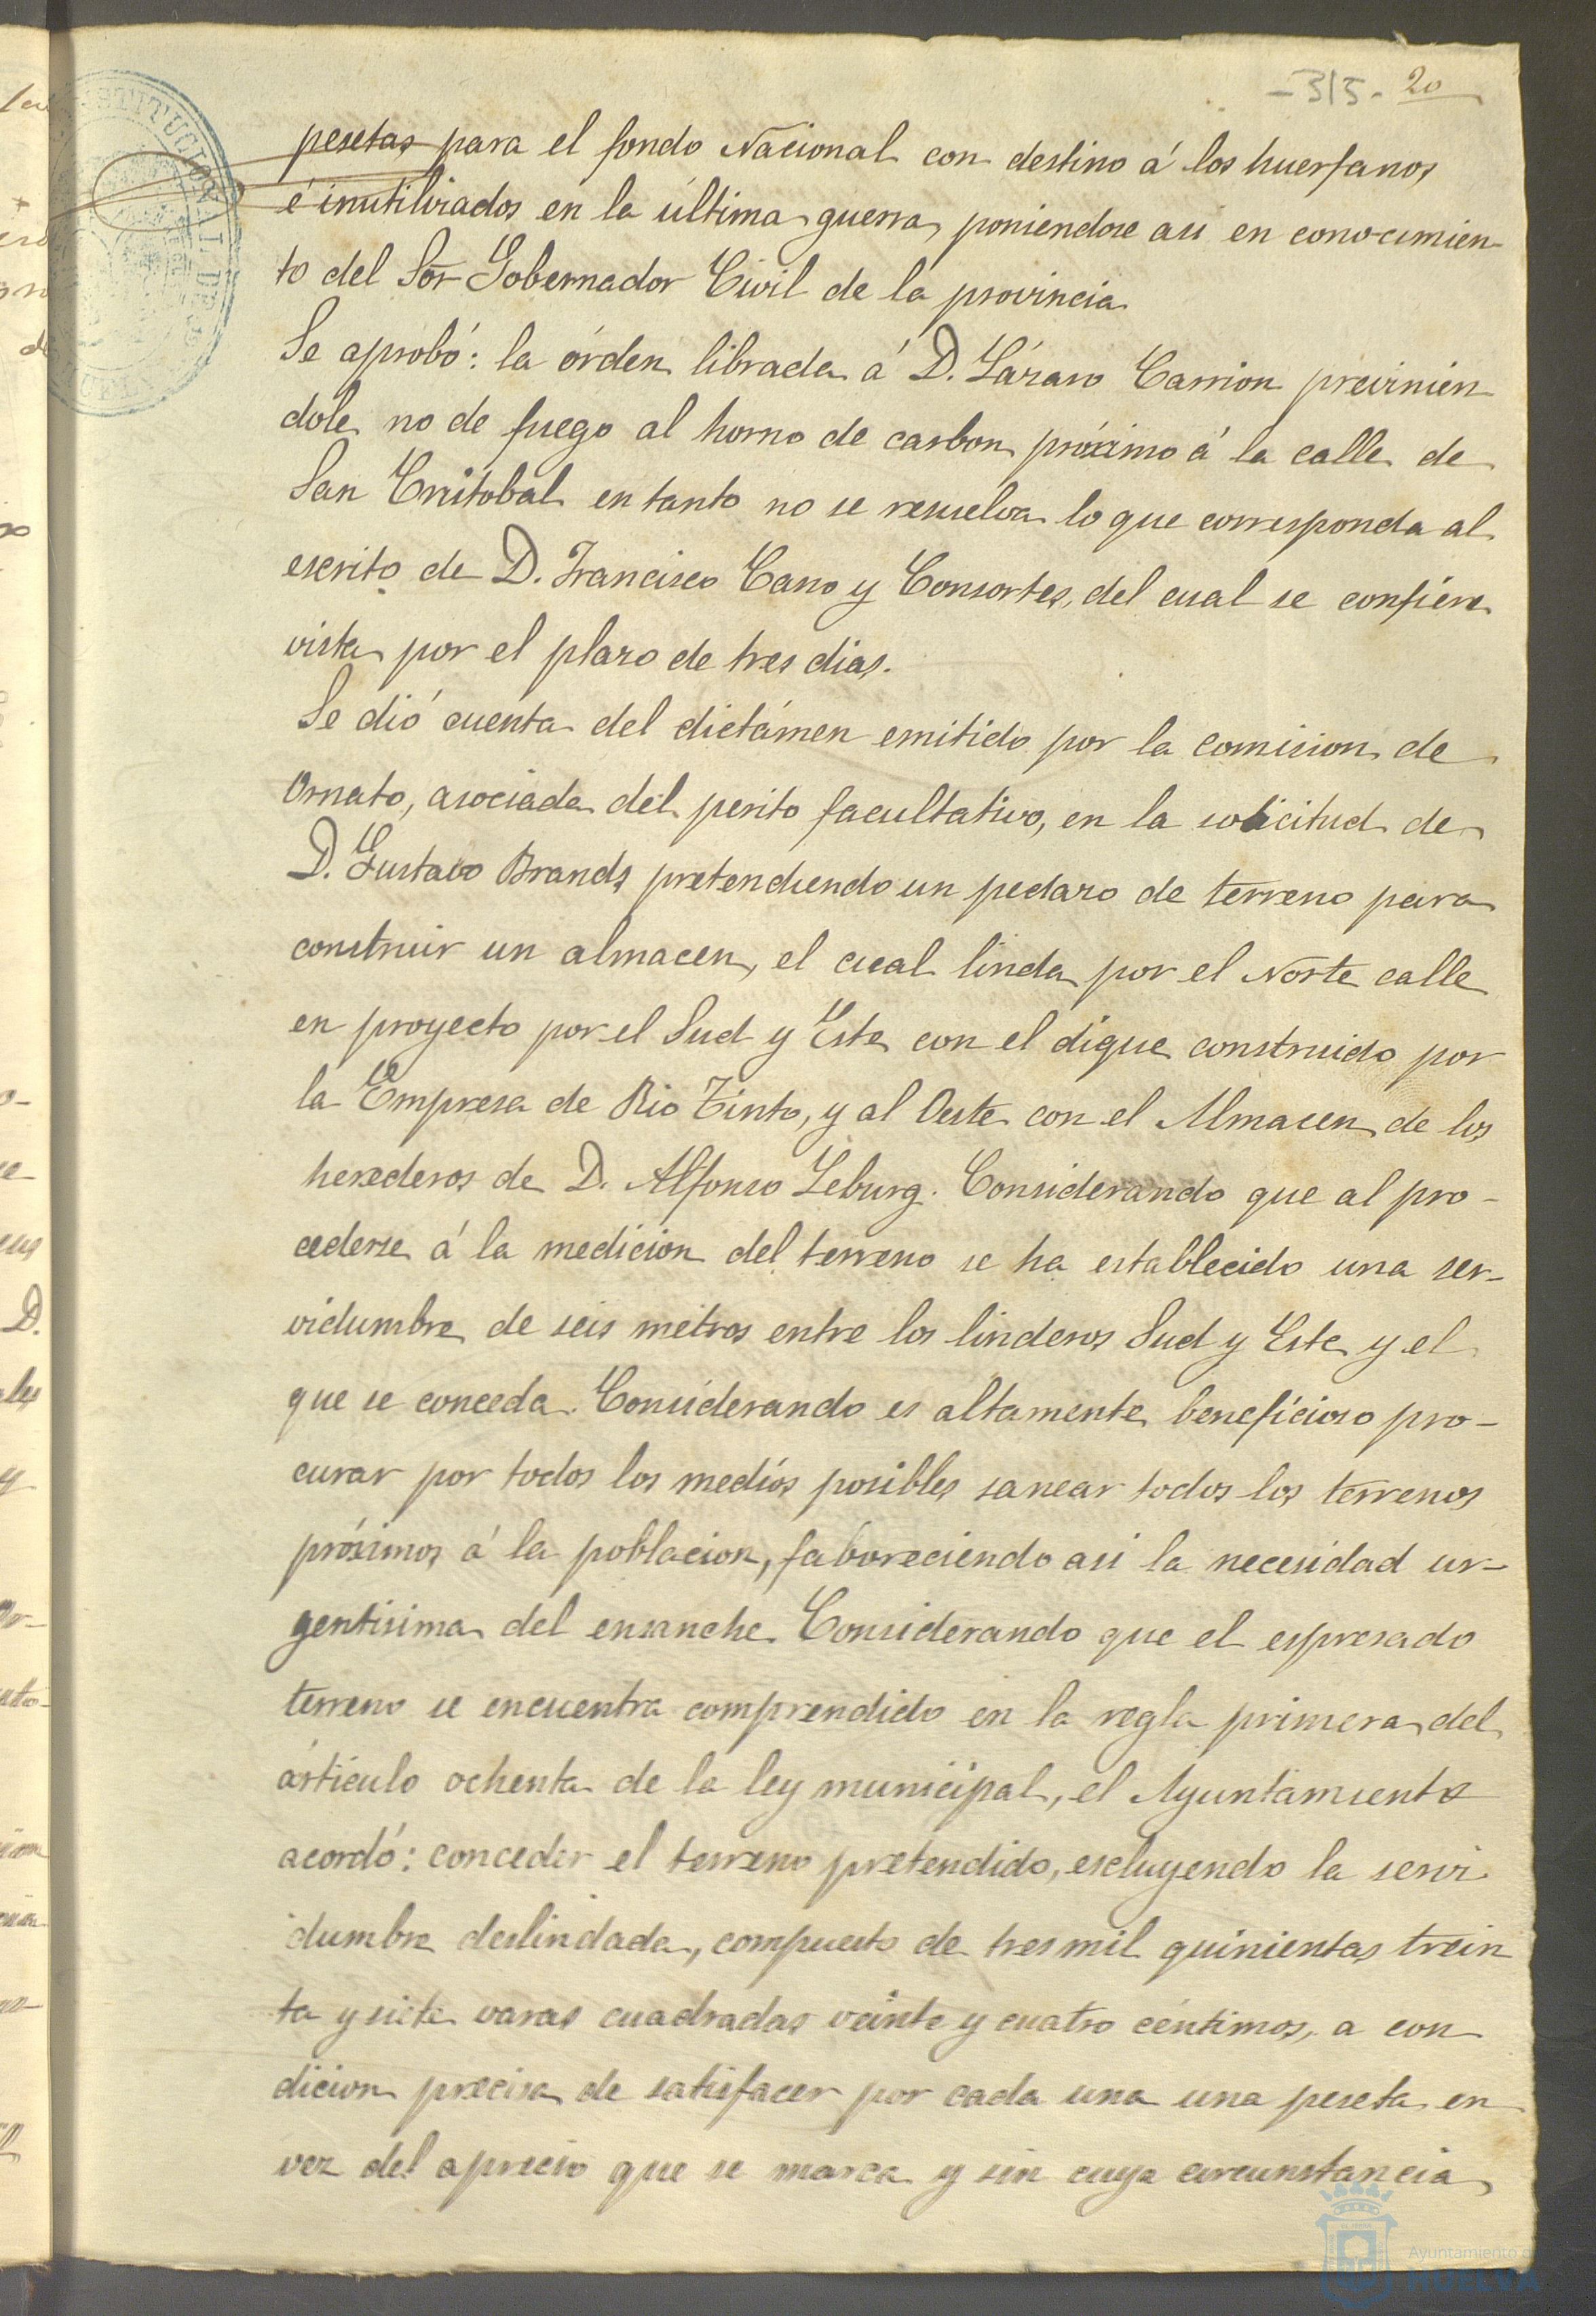 -315- 20
pesetas para el fondo Nacional con destino á los huerfanos
é inutilizados en la última guerra, poniendose asi en conocimien-
to del Sor Gobernador Civil de la provincia
Se aprobó: la órden librada á D. Lázaro Carrion previnien
dole no de fuego al horno de carbon próximo á la calle de
San Cristobal en tanto no se resuelva lo que corresponda al
escrito de D. Francisco Cano y Consortes, del cual se confiere
vista por el plazo de tres dias.
Se dió cuenta del dictámen emitido por la comision de
Ornato, asociada del perito facultativo, en la solicitud de
D. Gustavo Brands pretendiendo un pedazo de terreno para
construir un almacen, el cual linda por el Norte calle
en proyecto por el Sud y Este con el dique construido por
la Empresa de Rio Tinto, y al Oeste con el Almacen de los
herederos de D. Alfonso Leburg. Considerando que al pro-
cederse á la medicion del terreno se ha establecido una ser-
vidumbre de seis metros entre los linderos Sud y Este y el
que se conceda. Considerando es altamente beneficioso pro-
curar por todos los medios posibles sanear todos los terrenos
próximos á la poblacion, faboreciendo asi la necesidad ur-
gentisima del ensanche. Considerando que el espresado
terreno se encuentra comprendido en la regla primera del
artículo ochenta de la ley municipal, el Ayuntamiento
acordó: conceder el terreno pretendido, escluyendo la servi
dumbre deslindada, compuesto de tres mil quinientas trein
ta y siete varas cuadradas veinte y cuatro céntimos, a con
dicion precisa de satisfacer por cada una una peseta en
vez del aprecio que se marca y sin cuya circunstancia
Ayuntamiento
HUELVA